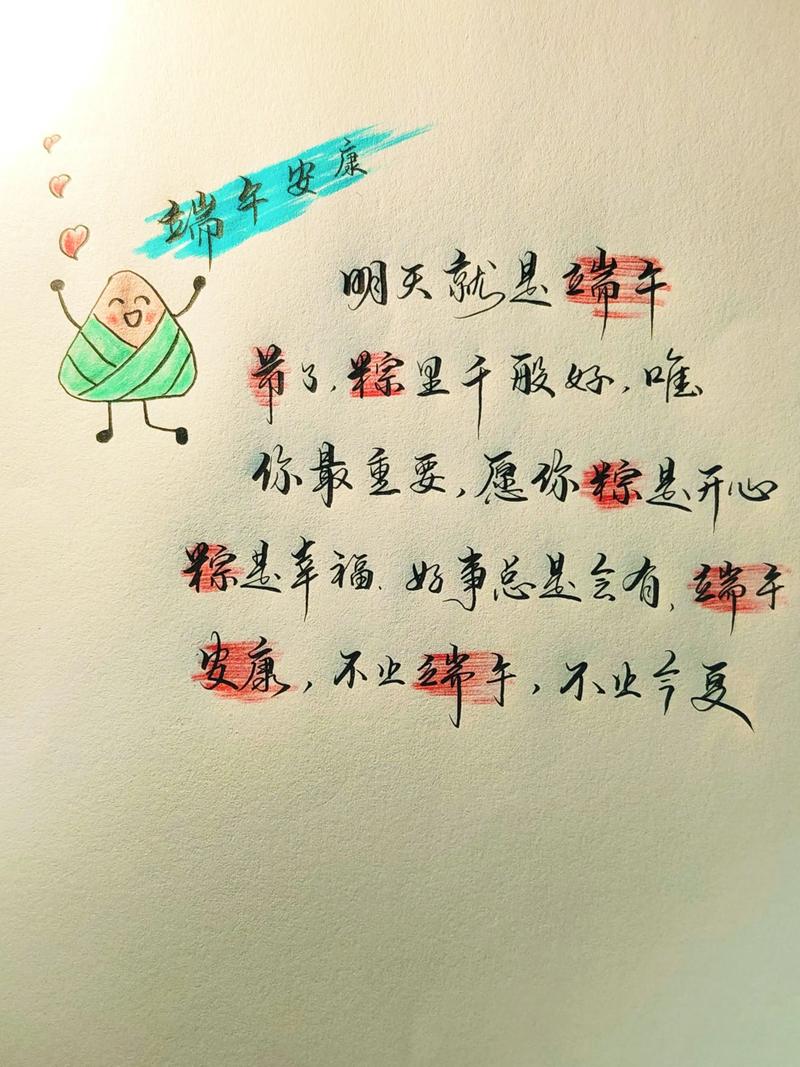 端午安康
明天就是端午
节了,粽里千般好,唯
你最重要,愿你粽是开心
粽是幸福.好事总是会有,端午
安康,不止端午,不止今夏